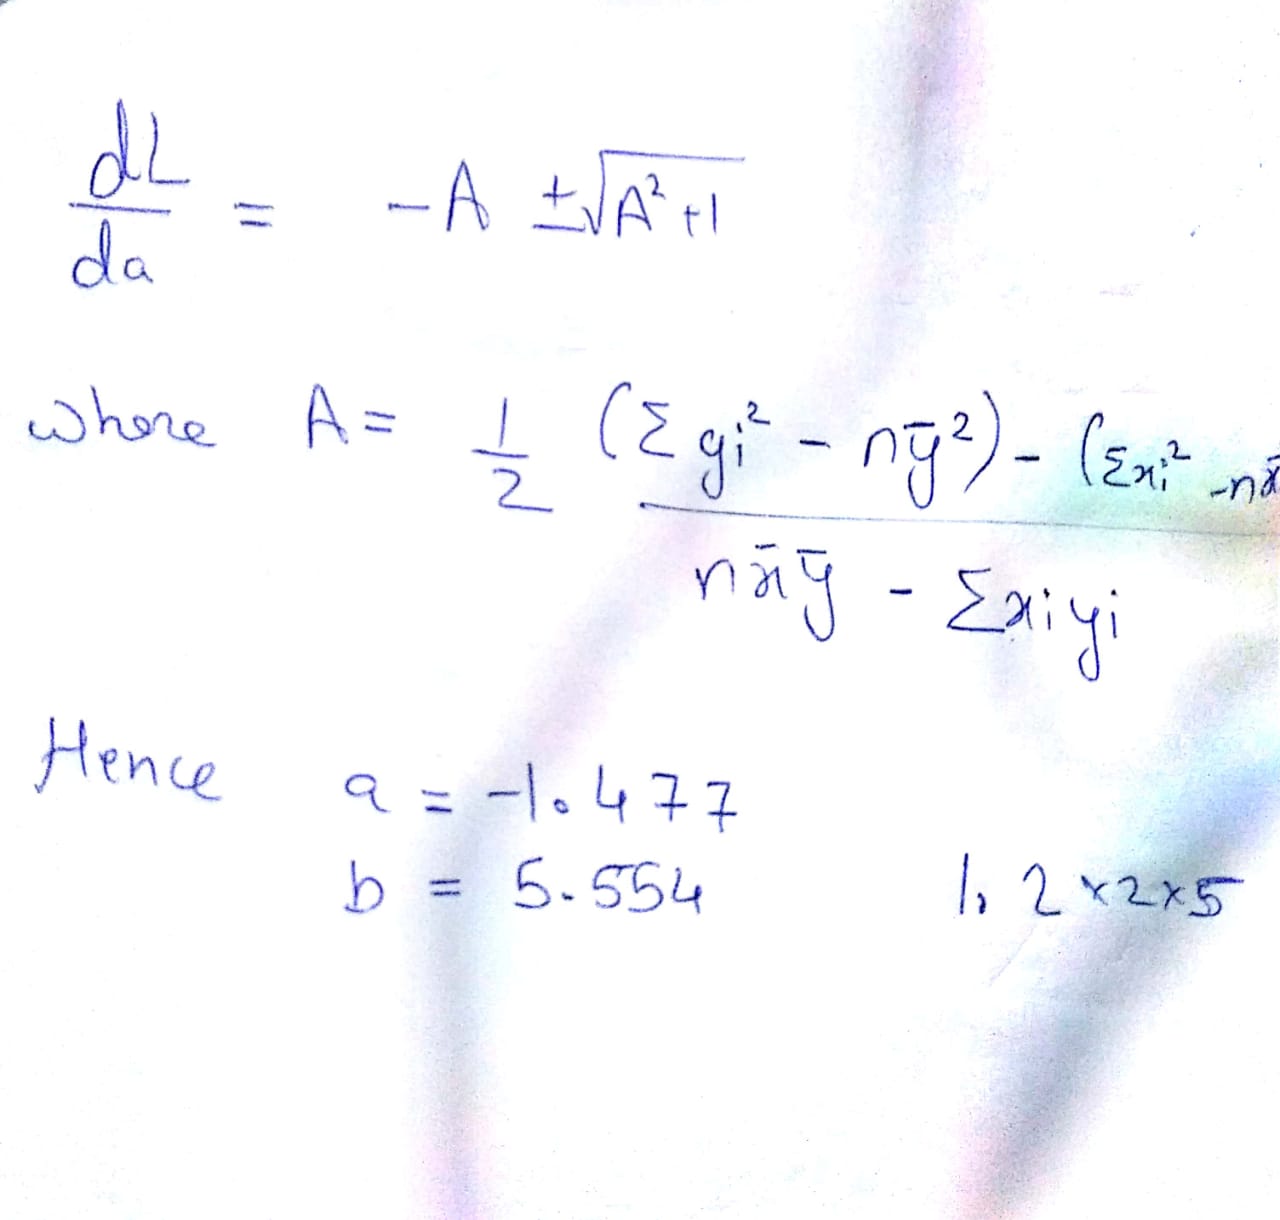 dL/da = -A ±√(A² + 1)
where A = 1/2 (Σyi² - nȳ²) - (Σxi² - nx̄
nx̄ȳ - Σxiyi
Hence a = -1.477
b = 5.554 1, 2×2×5